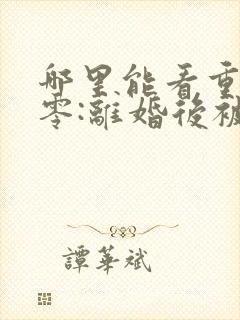 哪里能看重
零:離婚後被
譚華斌